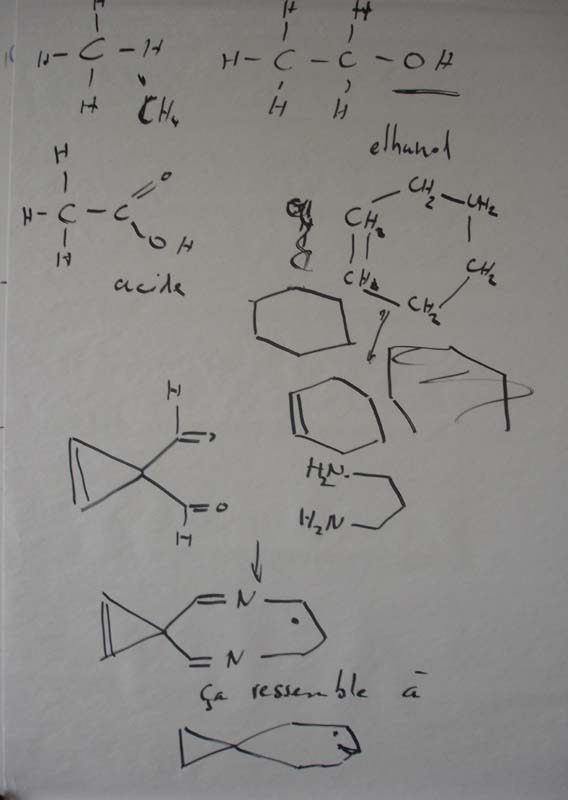 H
H - C - H
H
CH4
H H
H - C - C - OH
H H
ethanol
H
H - C - C = O
O H
H
acide
CH2
CH2
CH2
CH2
CH
CH
H
O
H
H2N
H2N
N
N
ça ressemble à